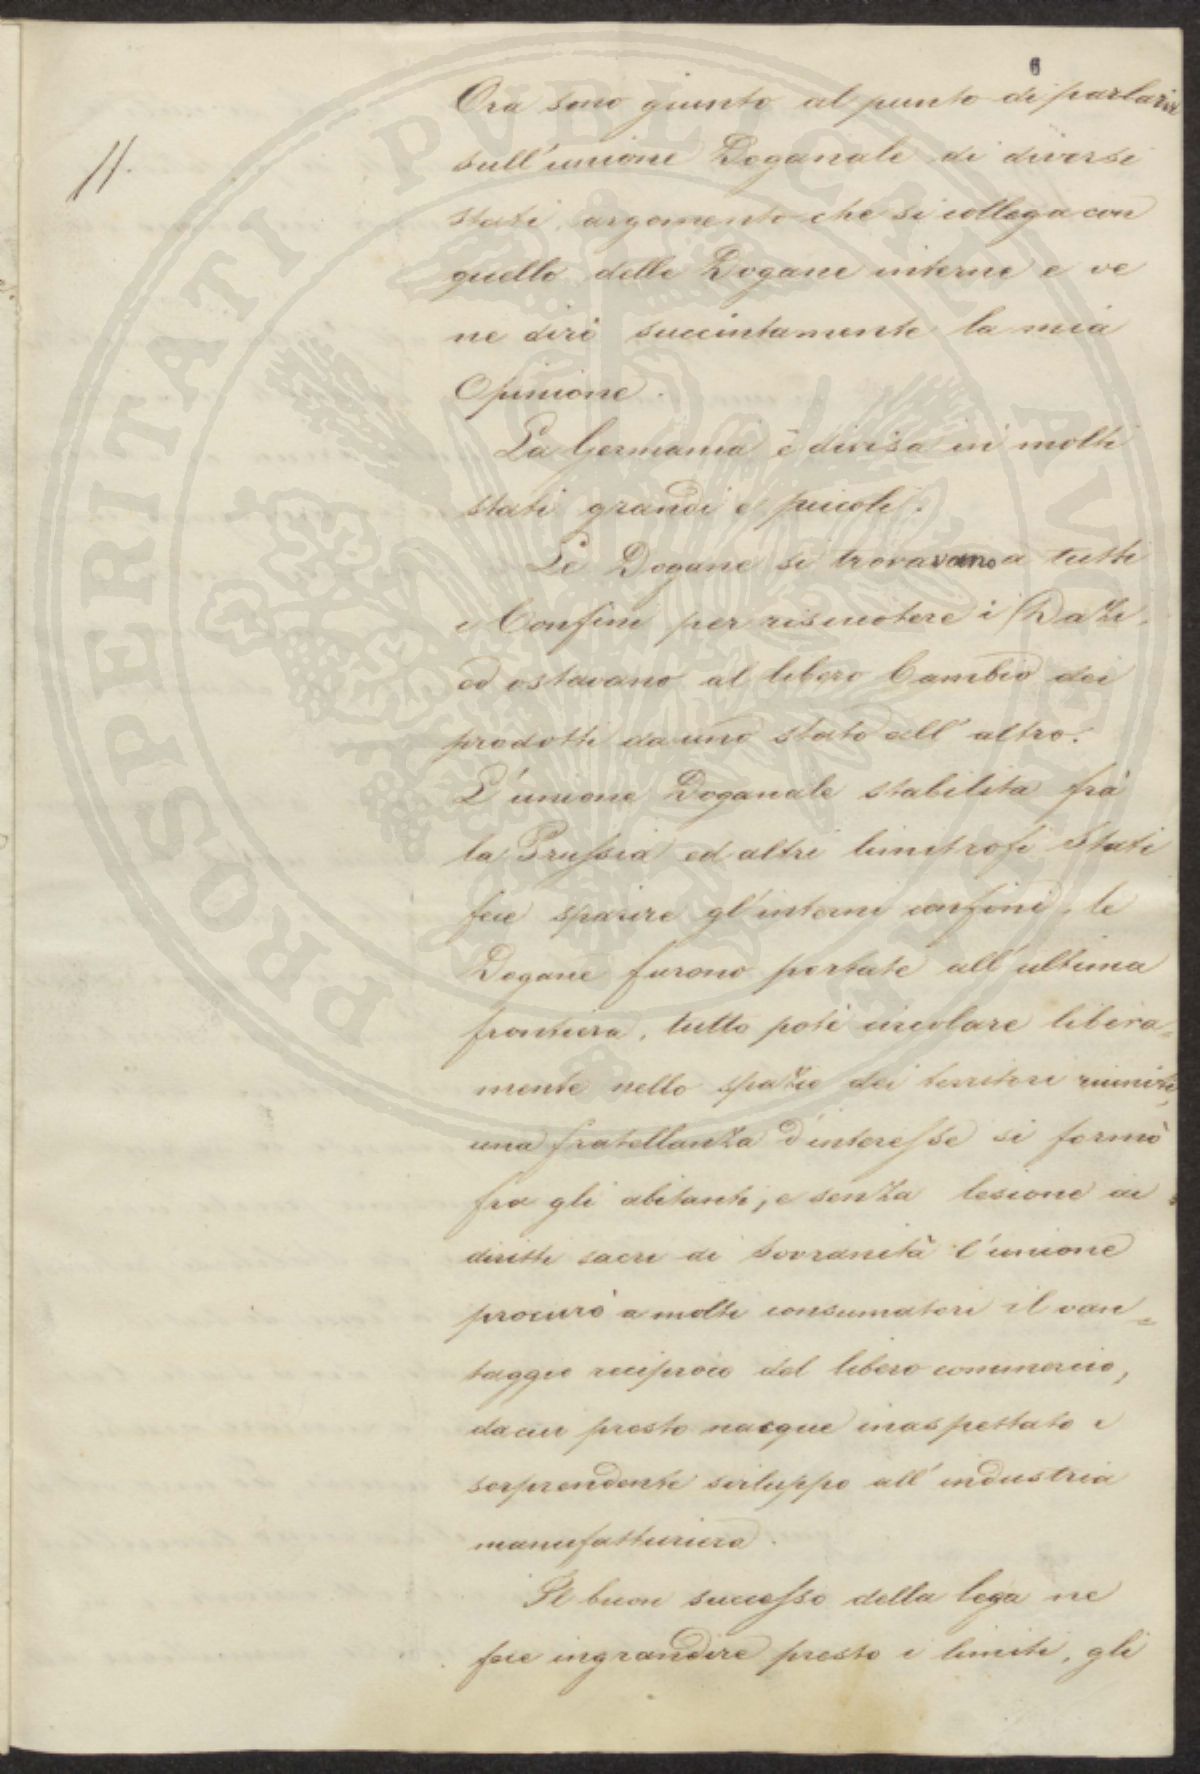 6
11.
Ora sono giunto al punto di parlarvi
sull'unione Doganale di diversi
stati, argomento che si collega con
quello delle Dogane interne e ve
ne dirò succintamente la mia
Opinione.
La Germania è divisa in molti
stati grandi e piccoli.
Le Dogane si trovavano a tutti
i Confini per riscuotere i Dazi,
ed ostavano al libero Cambio dei
prodotti da uno stato all'altro.
L'unione Doganale stabilita frà
la Prussia ed altri limitrofi Stati
fece sparire gl'interni confini, le
Dogane furono portate all'ultima
frontiera, tutto potè circolare libera=
mente nello spazio dei territori riuniti,
una fratellanza d'interesse si formò
fra gli abitanti, e senza lesione ai
diritti sacri di Sovranità l'unione
procurò a molti consumatori il van=
taggio reciproco del libero commercio,
da cui presto nacque inaspettato e
sorprendente sviluppo all'industria
manufatturiera.
Il buon successo della lega ne
fece ingrandire presto i limiti, gli
PROSPERITATI PVBLICAE AVGENDAE